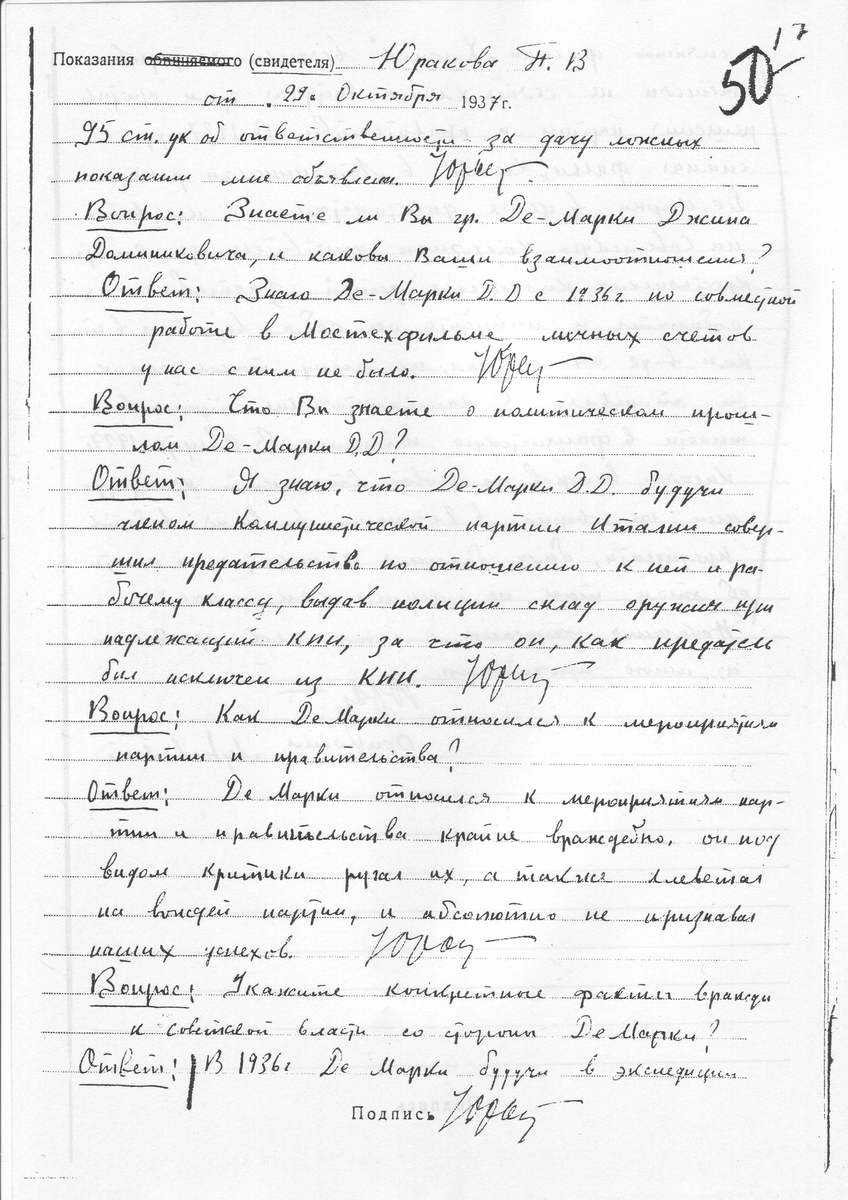 17
50
Показания обвиняемого (свидетеля) Юракова П. В
от 29. Октября 1937 г.
95 ст. ук об ответственности за дачу ложных
показаний мне объявлена.
Вопрос: Знаете ли Вы гр. Де-Марки Джина
Доминиковича, и каковы Ваши взаимоотношения?
Ответ: Знаю Де-Марки Д. Д с 1936 г. по совместной
работе в Мостехфильме личных счетов
у нас с ним не было.
Вопрос: Что Вы знаете о политическом прош-
лом Де-Марки Д.Д?
Ответ: Я знаю, что Де-Марки Д.Д. будучи
членом Коммунистической партии Италии совер-
шил предательство по отношению к ней и ра-
бочему классу, выдав полиции склад оружия при
надлежащий КПИ, за что он, как предатель
был исключен из КПИ.
Вопрос: Как Де Марки относился к мероприятиям
партии и правительства?
Ответ: Де Марки относился к мероприятиям пар-
тии и правительства крайне враждебно, он под
видом критики ругал их, а также клеветал
на вождей партии, и абсолютно не признавал
наших успехов.
Вопрос: Укажите конкретные факты вражды
к советской власти со стороны Де Марки?
Ответ: В 1936 г Де Марки будучи в экспедиции
Подпись